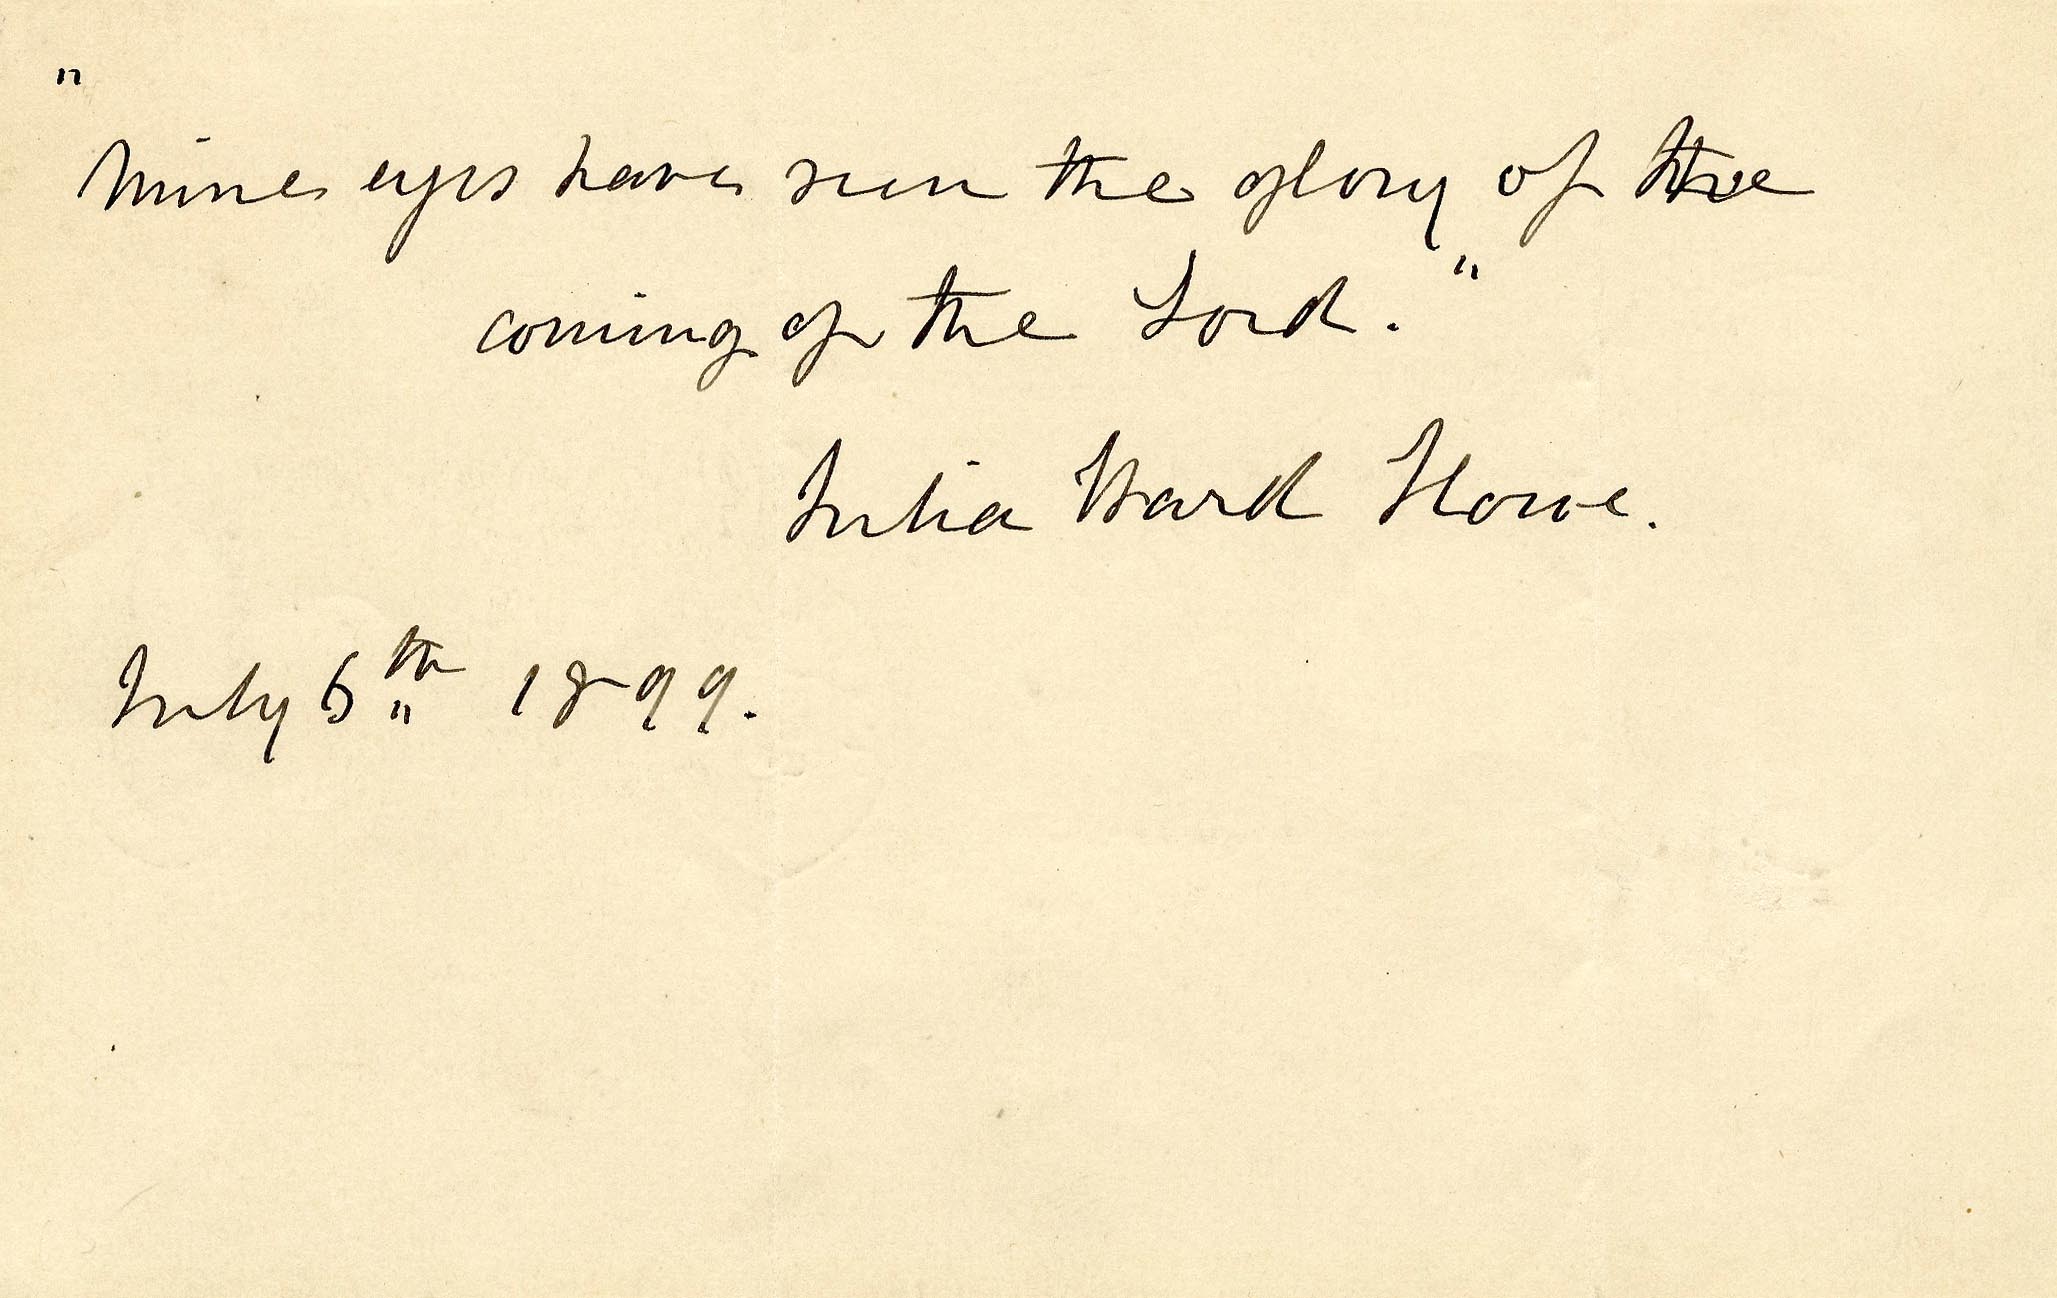 "
Mine eyes have seen the glory of the
coming of the Lord."
Julia Ward Howe.
July 5th 1899.